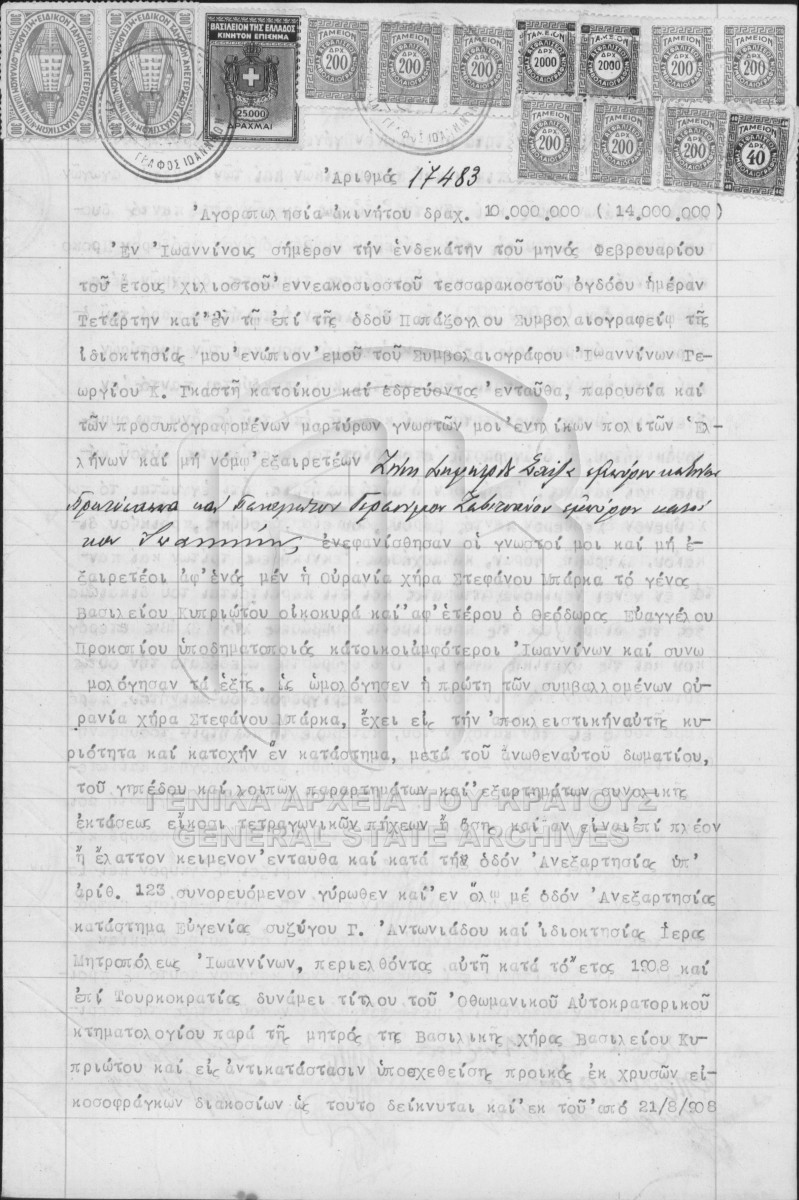 ΒΑΣΙΛΕΙΟΝ ΤΗΣ ΕΛΛΑΔΟΣ
ΚΙΝΗΤΟΝ ΕΠΙΣΗΜΑ
25000
ΔΡΑΧΜΑΙ
ΤΑΜΕΙΟΝ ΔΡΧ 200
ΤΑΜΕΙΟΝ ΔΡΧ 200
ΤΑΜΕΙΟΝ ΔΡΧ 200
ΤΑΜΕΙΟΝ ΔΡΧ 2000
ΤΑΜΕΙΟΝ ΔΡΧ 2000
ΤΑΜΕΙΟΝ ΔΡΧ 200
ΤΑΜΕΙΟΝ ΔΡΧ 200
ΤΑΜΕΙΟΝ ΔΡΧ 200
ΤΑΜΕΙΟΝ ΔΡΧ 200
ΤΑΜΕΙΟΝ ΔΡΧ 200
ΤΑΜΕΙΟΝ ΔΡΧ 40
ΓΡΑΦΟΣ ΙΩΑΝΝΙΝΩΝ
Ἀριθμός 17483
Ἀγοραπωλησία ἀκινήτου δραχ. 10.000.000 (14.000.000)
Ἐν Ἰωαννίνοις σήμερον τήν ἑνδεκάτην τοῦ μηνός Φεβρουαρίου
τοῦ ἔτους χιλιοστοῦ ἐννεακοσιοστοῦ τεσσαρακοστοῦ ὀγδόου ἡμέραν
Τετάρτην καί ἐν τῷ ἐπί τῆς ὁδοῦ Παπάζογλου Συμβολαιογραφείῳ τῆς
ἰδιοκτησίας μου ἐνώπιον ἐμοῦ τοῦ Συμβολαιογράφου Ἰωαννίνων Γε-
ωργίου Κ. Γκαστῆ κατοίκου καί ἑδρεύοντος ἐνταῦθα, παρουσία καί
τῶν προσυπογραφομένων μαρτύρων γνωστῶν μοι ἐνηλίκων πολιτῶν Ἑλ-
λήνων καί μή νόμῳ ἐξαιρετέων
Ἰωαννίνων, ἐνεφανίσθησαν οἱ γνωστοί μοι καί μή ἐ-
ξαιρετέοι ἀφ' ἑνός μέν ἡ Οὐρανία χήρα Στεφάνου Μπάρκα τό γένος
Βασιλείου Κυπριώτου οἰκοκυρά καί ἀφ' ἑτέρου ὁ Θεόδωρος Εὐαγγέλου
Προκοπίου ὑποδηματοποιός κάτοικοι ἀμφότεροι Ἰωαννίνων καί συνω
μολόγησαν τά ἑξῆς. Ὡς ὡμολόγησεν ἡ πρώτη τῶν συμβαλλομένων Οὐ-
ρανία χήρα Στεφάνου Μπάρκα, ἔχει εἰς τήν ἀποκλειστικήν αὐτῆς κυ-
ριότητα καί κατοχήν ἕν κατάστημα, μετά τοῦ ἄνωθεν αὐτοῦ δωματίου,
τοῦ γηπέδου καί λοιπων παραρτημάτων καί ἐξαρτημάτων συνολικῆς
ἐκτάσεως εἴκοσι τετραγωνικῶν πήχεων ἤ ὅσης καί ἄν εἶναι ἐπί πλέον
ἤ ἔλαττον κειμενον ἐνταυθα καί κατά τήν ὁδόν Ἀνεξαρτησίας ὑπ'
ἀριθ. 123 συνορευόμενον γύρωθεν καί ἐν ὅλῳ μέ ὁδόν Ἀνεξαρτησίας
κατάστημα Εὐγενίας συζύγου Γ. Ἀντωνιάδου καί ἰδιοκτησία Ἱερας
Μητροπόλεως Ἰωαννίνων, περιελθόντος αὐτῇ κατά τό ἔτος 1908 καί
ἐπί Τουρκοκρατίας δυνάμει τίτλου τοῦ Ὀθωμανικοῦ Αὐτοκρατορικοῦ
κτηματολογίου παρά τῆς μητρός της Βασιλικῆς χήρας Βασιλείου Κυ-
πριώτου καί εἰς ἀντικατάστασιν ὑποσχεθείσης προικός ἐκ χρυσῶν εἰ-
κοσοφράγκων διακοσίων ὡς τουτο δείκνυται καί ἐκ τοῦ ἀπό 21/8/908
ΓΕΝΙΚΑ ΑΡΧΕΙΑ ΤΟΥ ΚΡΑΤΟΥΣ
GENERAL STATE ARCHIVES